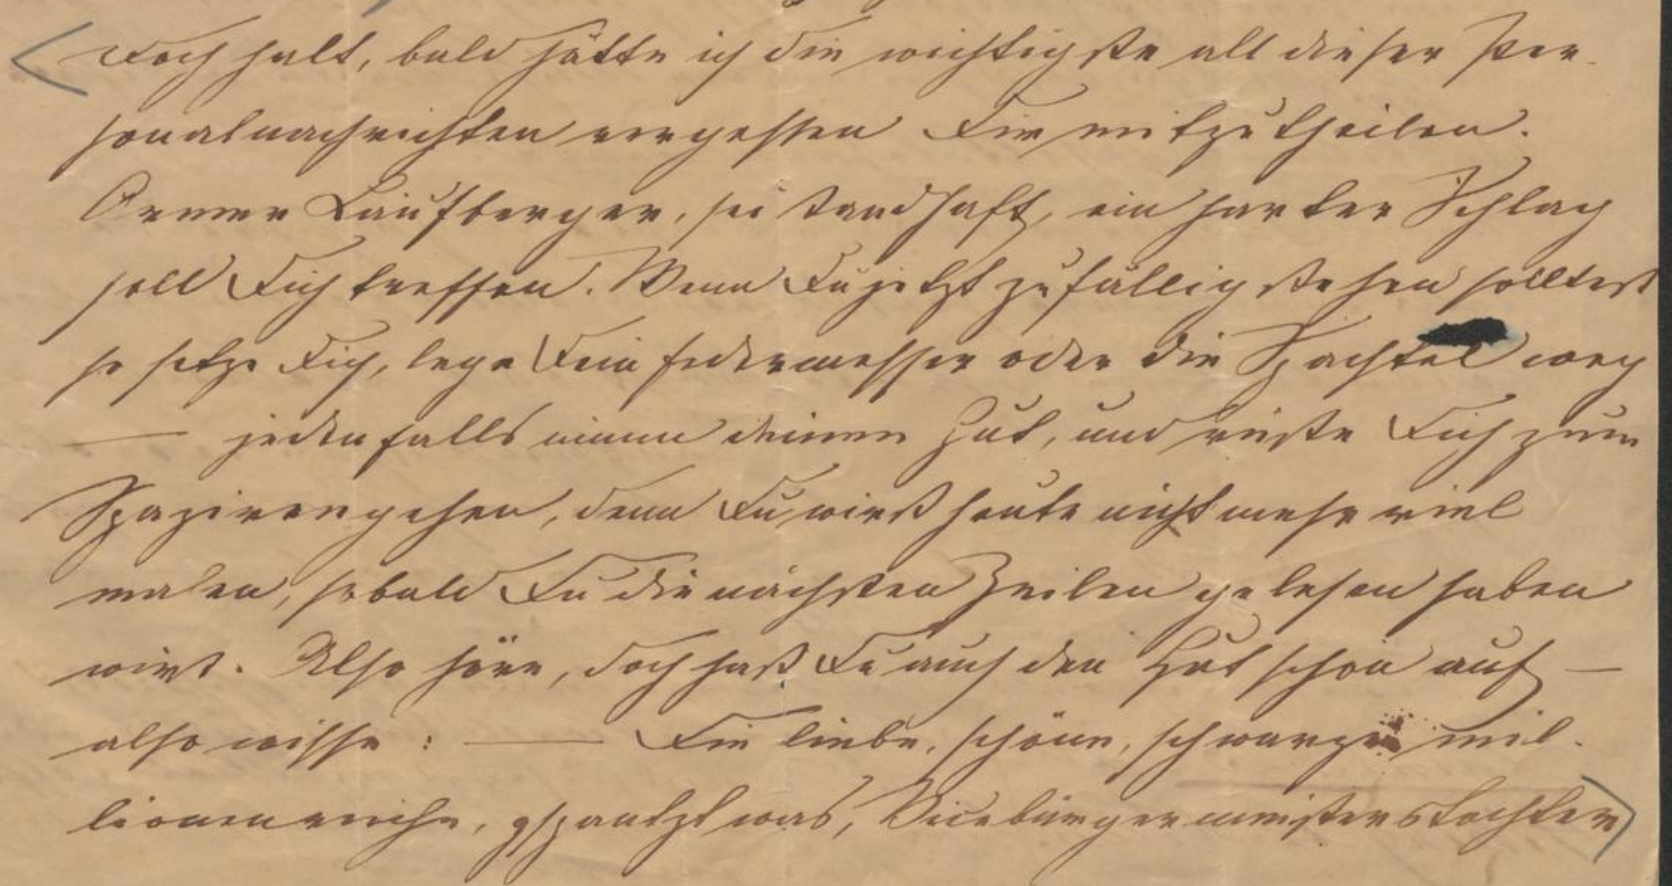 Doch halt, bald hätte ich die wichtigste all dieser Per-
sonalnachrichten vergessen Dir mitzutheilen.
Armer Laufberger, sei standhaft, ein harter Schlag
soll Dich treffen. Wenn Du jetzt zufällig stehen solltest
so setze Dich, lege Dein Federmesser oder die Spachtel weg
— jedenfalls nimm deinen Hut, und rüste Dich zum
Spazirengehen, denn Du wirst heute nicht mehr viel
malen, sobald Du die nächsten Zeilen gelesen haben
wirst. Also höre, doch hast Du auch den Hut schon auf —
also wisse: — Die liebe, schöne, schwarze mil-
lionenreiche, was, Vicebürgermeisterstochter